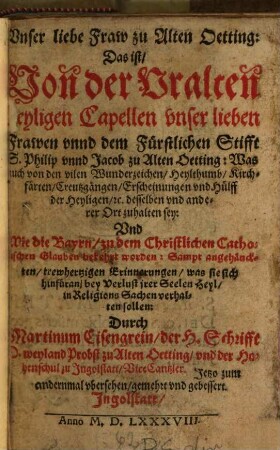 Vnser liebe Fraw zu Alten Oetting:
Das ist/
Von der Vralten
eyligen Capellen vnser lieben
Frawen vnnd dem Fürstlichen Stifft
S. Philip vnnd Jacob zu Alten Oetting: Was
uch von den vilen Wunderzeichen/ Heylthumb/ Kirch-
färten/ Creutzgängen/ Erscheinungen vnd Hülff
der Heyligen/ ꝛc. desselben vnd ande-
rer Ort zuhalten sey:
Vnd
Wie die Bayrn/ zu dem Christlichen Catho-
ischen Glauben bekehrt worden: Sampt angehänck-
ten/ trewhertzigen Erinnerungen/ was sie sich
hinfüran/ bey Verlust jrer Seelen Heyl/
in Religions Sachen verhal-
ten sollen:
Durch
Martinum Eisengrein/ der H. Schrifft
D. weyland Probst zu Alten Oetting/ vnd der Ho-
henschul zu Ingolstatt/ Vice Cantzler. Jetzo zum
andernmal vbersehen/ gemehrt vnd gebessert.
Ingolstatt/
Anno M. D. LXXXVIII.